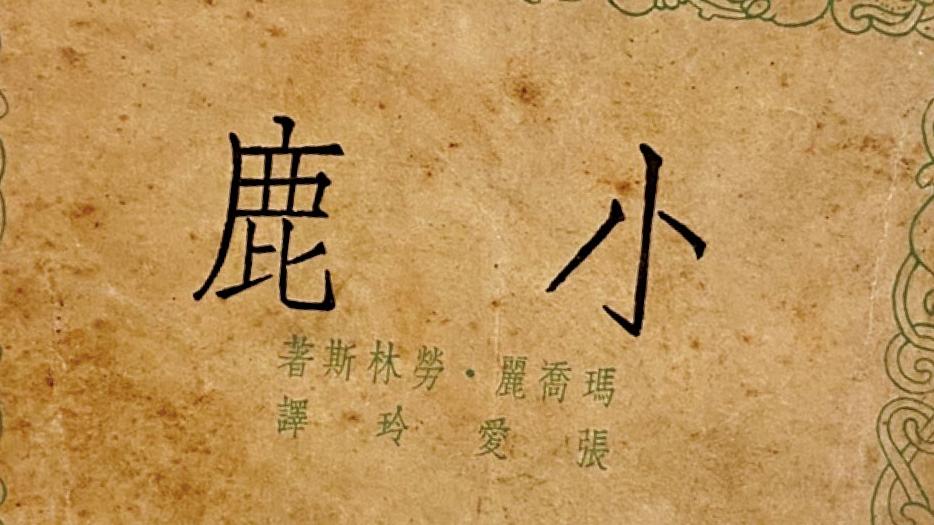 小鹿
瑪喬麗·勞林斯著
張愛玲譯